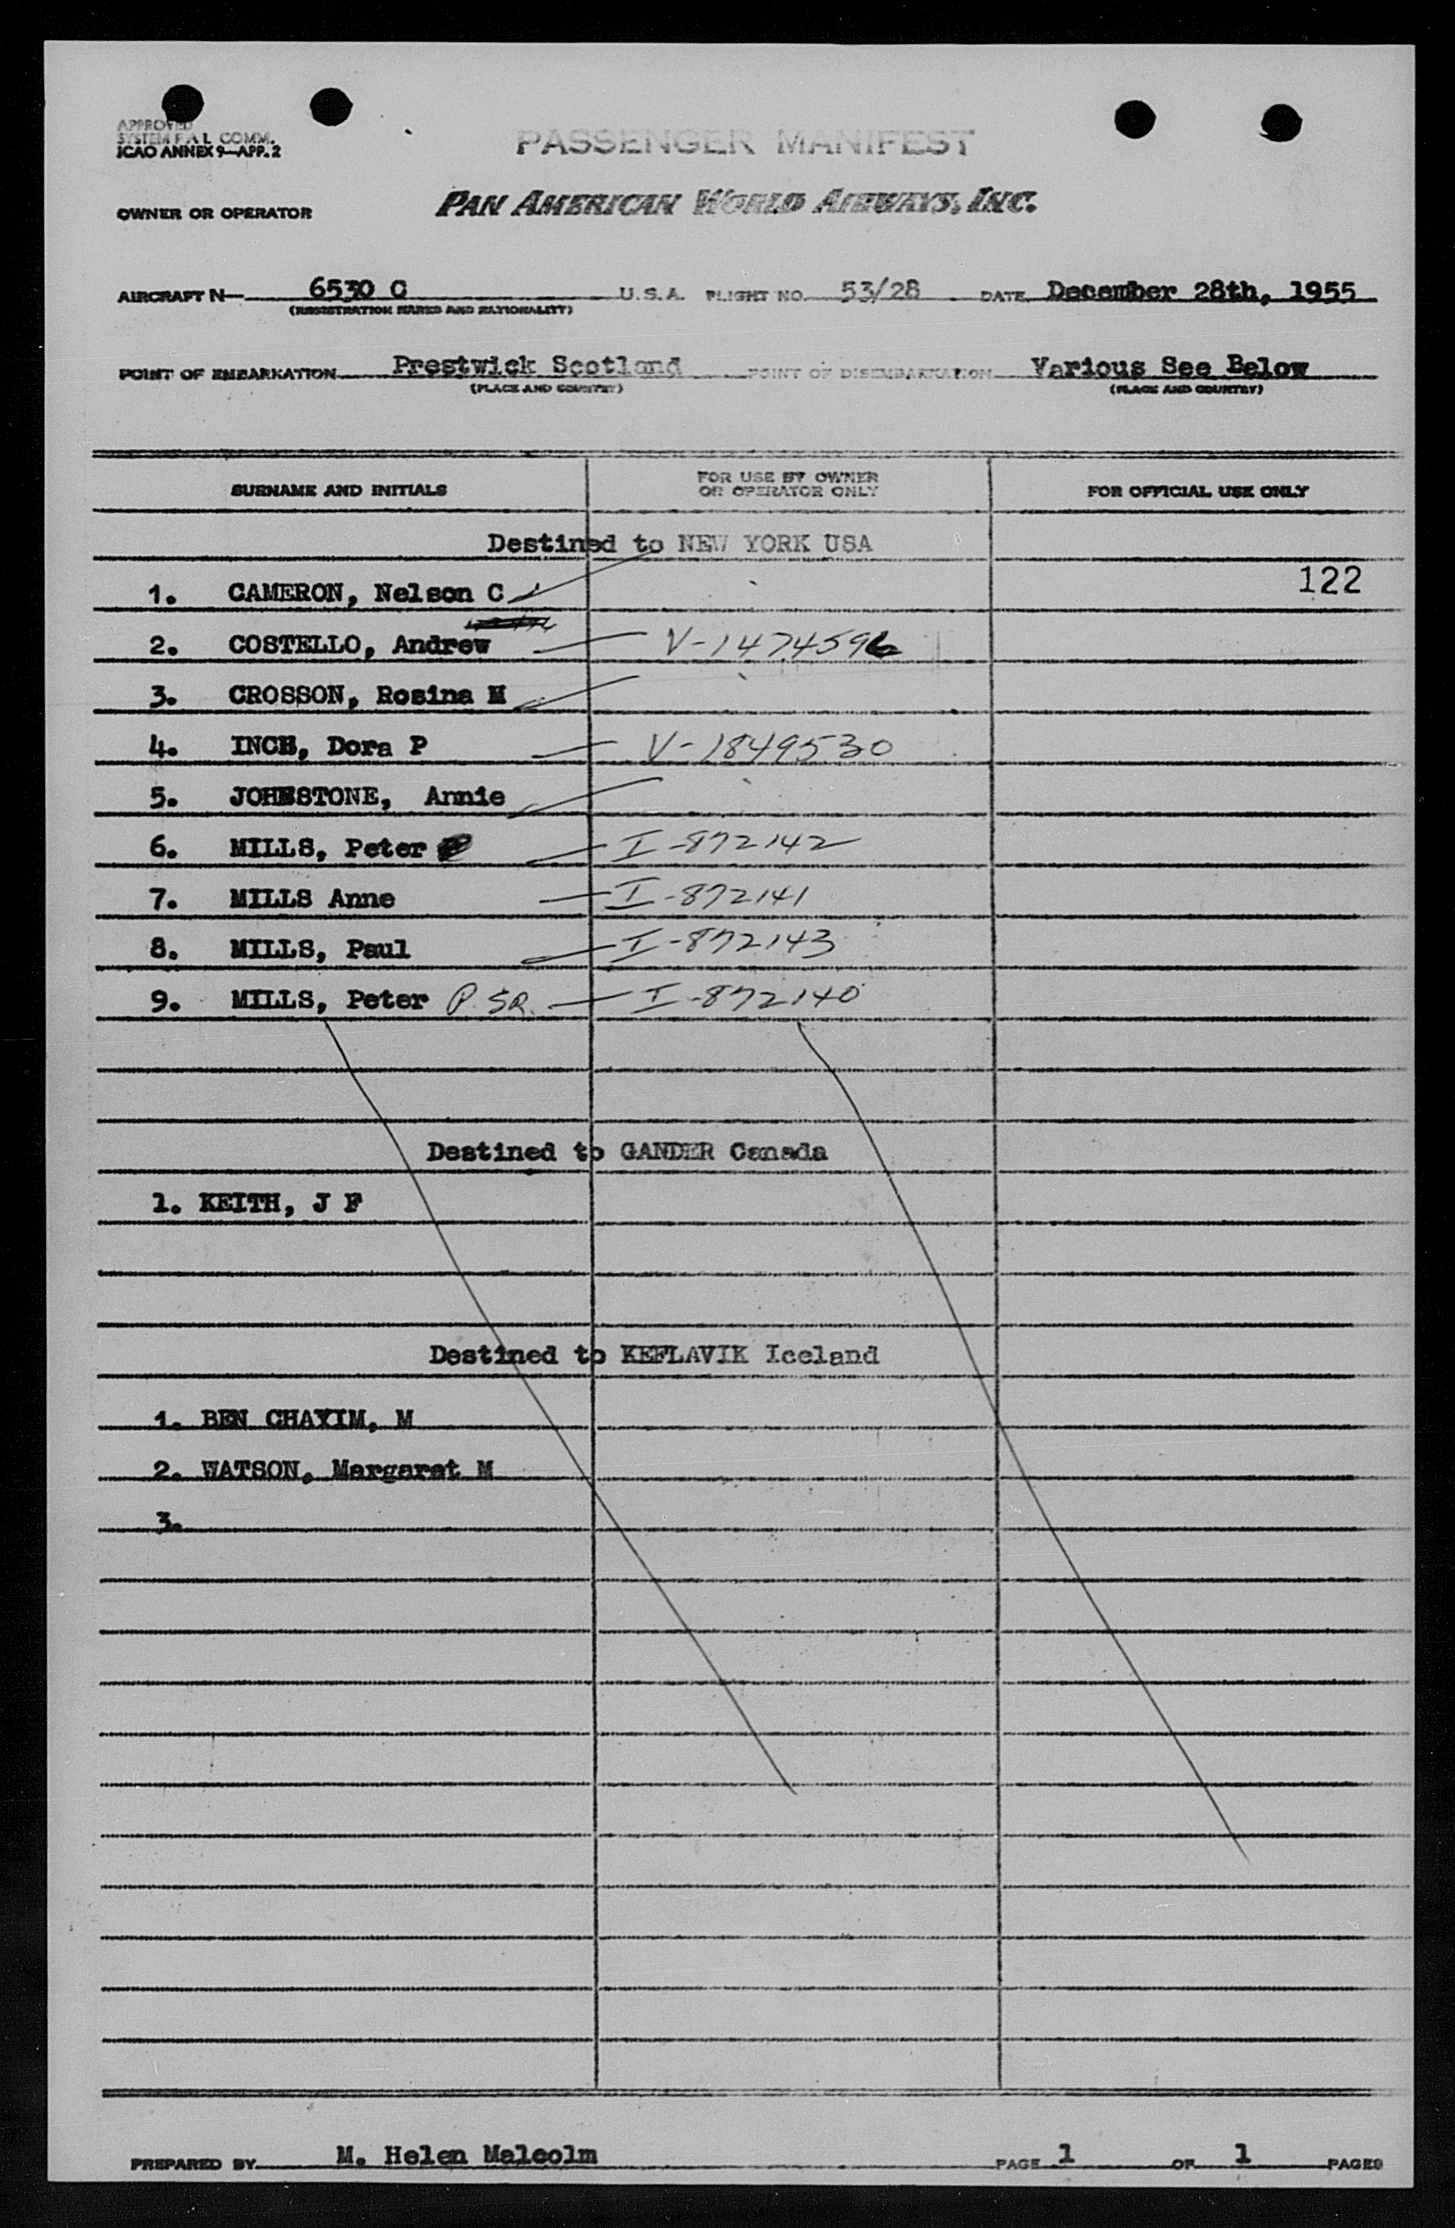 APPROVED
SYSTEM F A L COMM.
ICAO ANNEX 9—APP. 2
PASSENGER MANIFEST
OWNER OR OPERATOR PAN AMERICAN WORLD AIRWAYS, INC.
AIRCRAFT N— 6530 C U.S.A. FLIGHT NO. 53/28 DATE December 28th, 1955
(REGISTRATION MARKS AND NATIONALITY)
POINT OF EMBARKATION Prestwick Scotland POINT OF DISEMBARKATION Various See Below
(PLACE AND COUNTRY) (PLACE AND COUNTRY)
SURNAME AND INITIALS FOR USE BY OWNER OR OPERATOR ONLY FOR OFFICIAL USE ONLY
Destined to NEW YORK USA
1. CAMERON, Nelson C 122
2. COSTELLO, Andrew V-1474596
3. CROSSON, Rosina M
4. INCH, Dora P V-1849530
5. JOHNSTONE, Annie
6. MILLS, Peter I-872142
7. MILLS Anne I-872141
8. MILLS, Paul I-872143
9. MILLS, Peter P. SR. I-872140
Destined to GANDER Canada
1. KEITH, J F
Destined to KEFLAVIK Iceland
1. BEN CHAYIM, M
2. WATSON, Margaret M
3.
PREPARED BY M. Helen Malcolm PAGE 1 OF 1 PAGES